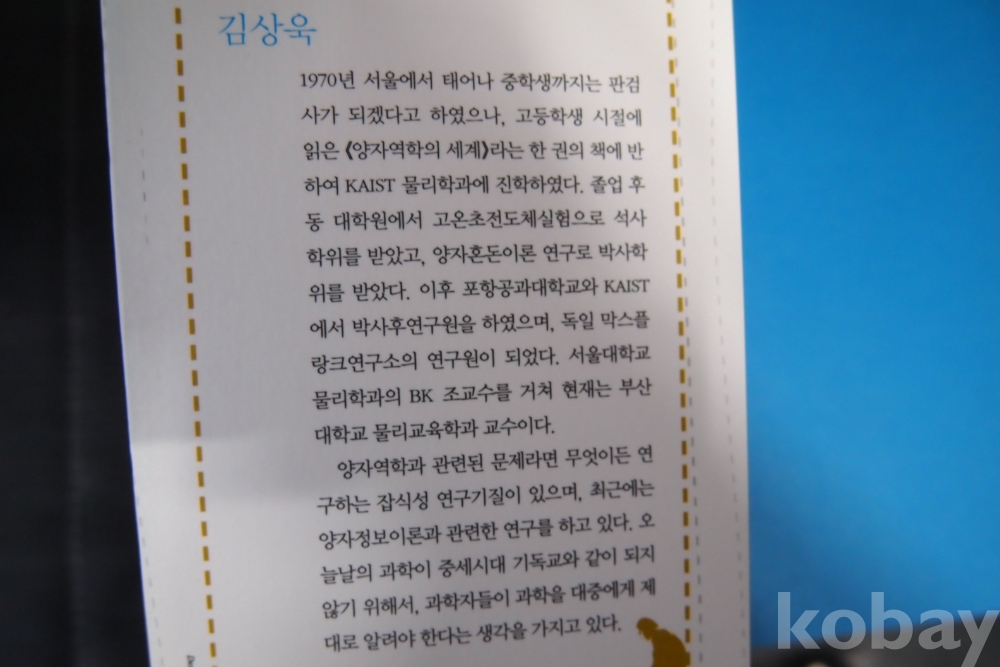 김상욱
1970년 서울에서 태어나 중학생까지는 판검
사가 되겠다고 하였으나, 고등학생 시절에
읽은 《양자역학의 세계》라는 한 권의 책에 반
하여 KAIST 물리학과에 진학하였다. 졸업 후
동 대학원에서 고온초전도체실험으로 석사
학위를 받았고, 양자혼돈이론 연구로 박사학
위를 받았다. 이후 포항공과대학교와 KAIST
에서 박사후연구원을 하였으며, 독일 막스플
랑크연구소의 연구원이 되었다. 서울대학교
물리학과의 BK 조교수를 거쳐 현재는 부산
대학교 물리교육학과 교수이다.
양자역학과 관련된 문제라면 무엇이든 연
구하는 잡식성 연구기질이 있으며, 최근에는
양자정보이론과 관련한 연구를 하고 있다. 오
늘날의 과학이 중세시대 기독교와 같이 되지
않기 위해서, 과학자들이 과학을 대중에게 제
대로 알려야 한다는 생각을 가지고 있다.
kobay